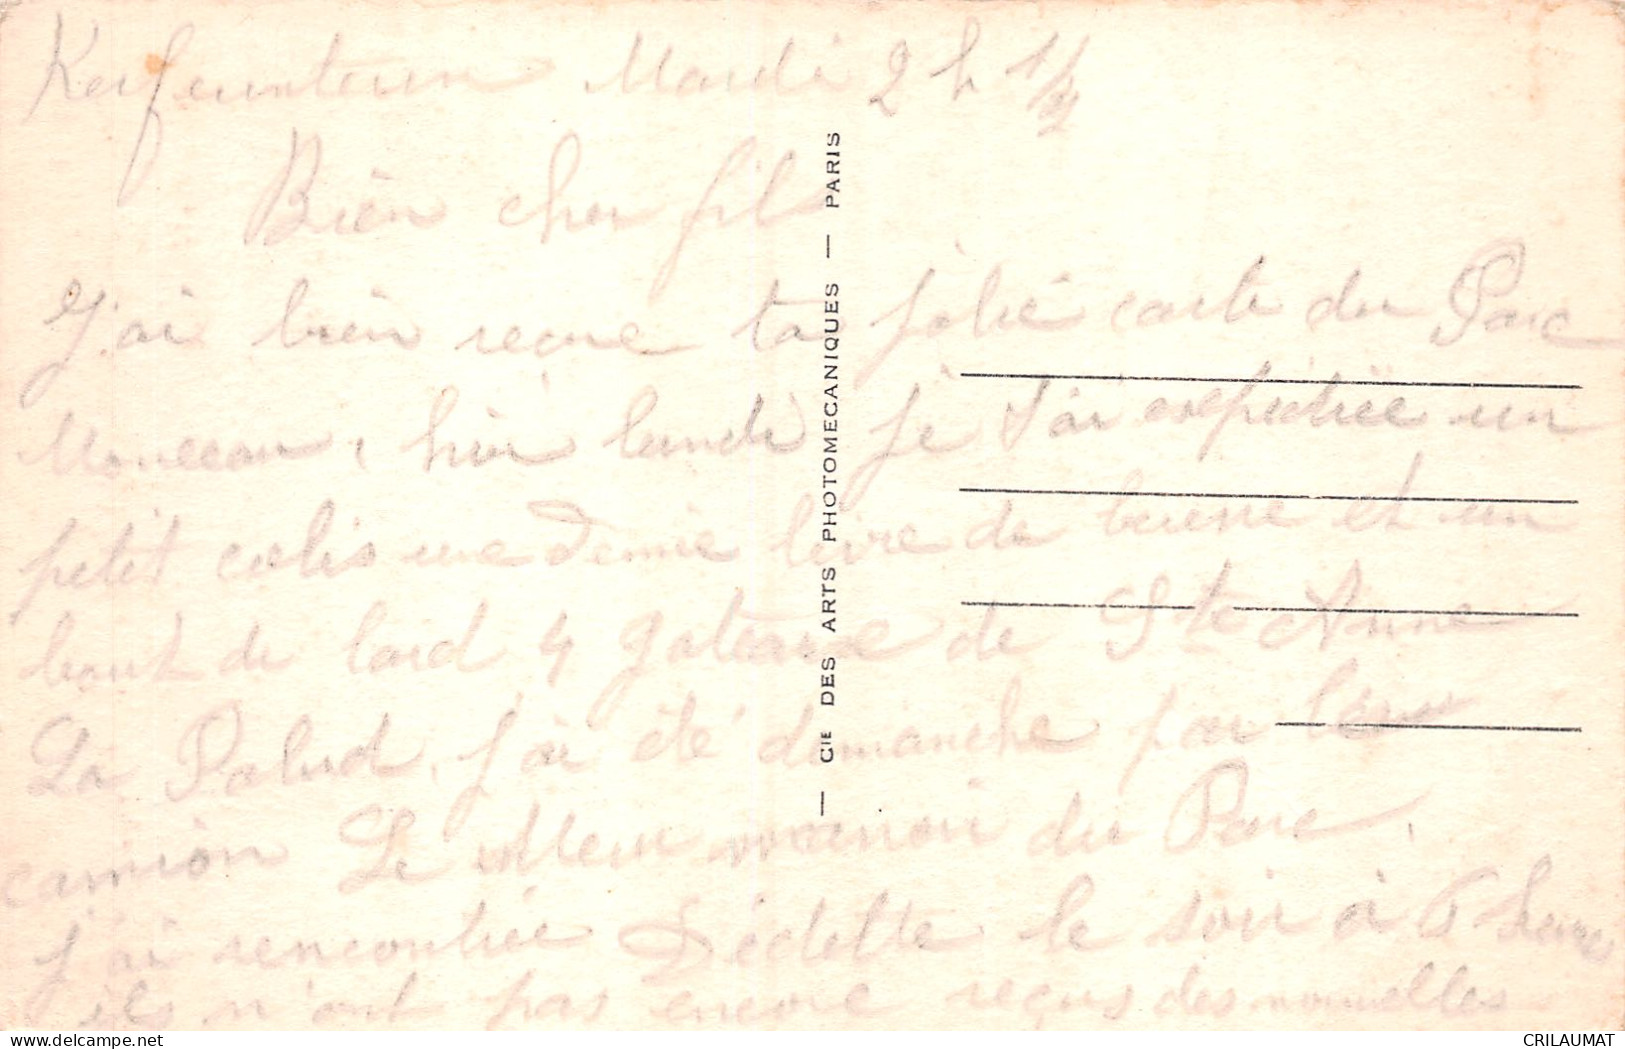 Kerfeunteun Mardi 2 h 1/2
Bien cher fils
J'ai bien reçue ta jolie carte du Parc
Monceau, hier lundi je t'ai expédiée un
petit colis une demie livre de beurre et un
bout de lard 4 gateaux de Ste Anne
La Palud, j'ai été dimanche par
camion Le manoir du Parc.
j'ai rencontrée Dédette le soir à 6 heures
ils n'ont pas encore reçus des nouvelles
— CIE DES ARTS PHOTOMECANIQUES — PARIS
delcampe.net
CRILAUMAT